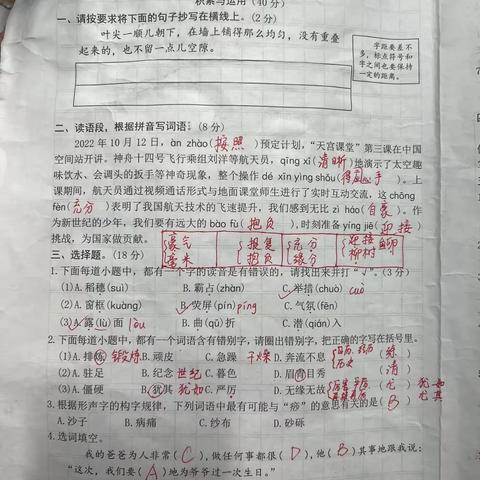 积累与运用(40分)
一、请按要求将下面的句子抄写在横线上。(2分)
叶尖一顺儿朝下，在墙上铺得那么均匀，没有重叠
起来的，也不留一点儿空隙。
字距要差不
多，标点符号和
字之间也要保持
一定的距离。
二、读语段，根据拼音写词语。(8分)
2022年10月12日，àn zhào(按照)预定计划，“天宫课堂”第三课在中国
空间站开讲。神舟十四号飞行乘组刘洋等航天员，qīng xī(清晰)地演示了太空趣
味饮水、会调头的扳手等神奇现象，整个操作dé xīn yìng shǒu(得心应手)。上
课期间，航天员通过视频通话形式与地面课堂师生进行了实时互动交流，这chōng
fèn(充分)表明了我国航天技术的飞速提升，我们感到无比zì háo(自豪)。作
为新世纪的少年，我们要有远大的bào fù(抱负)，时刻准备yíng jiē(迎接)
挑战，为国家做贡献。
豪气 报复 充分 迎接
毫米 抱负 缘分 柳树
三、选择题。(18分)
1.下面每道小题中，都有一个字的读音是有错误的，请找出来并打“√”。(3分)
(1)A.稻穗(suì) B.霸占(zhàn) √C.举措(chuò) cuò
(2)A.窗框(kuàng) √B.荧屏(pín) píng C.气氛(fēn)
(3)√A.露(lù)面 lòu B.曲(qū)折 C.潜(qián)入
2.下面每道小题中，都有一个词语含有错别字，请圈出错别字，把正确的字写在括号里。
(1)A.排练 锻炼 B.顽皮 C.急躁 干燥 D.奔流不息 (练)
(2)A.驻足 B.纪念 世纪 C.暮色 D.眉青目秀 (清)
(3)A.僵硬 B.犹其 犹如 C.严厉 D.无缘无故 (尤) 犹如
尤其
3.根据形声字的构字规律，下列词语中最有可能与“痧”的意思有关的是(B)
A.沙子 B.病痛 C.纱布 D.砂砾
4.选词填空。
我的爸爸为人非常(C)，做任何事都很(D)，他(B)其事地跟我说：
“这次，我们要(A)地为爷爷过一次生日。”